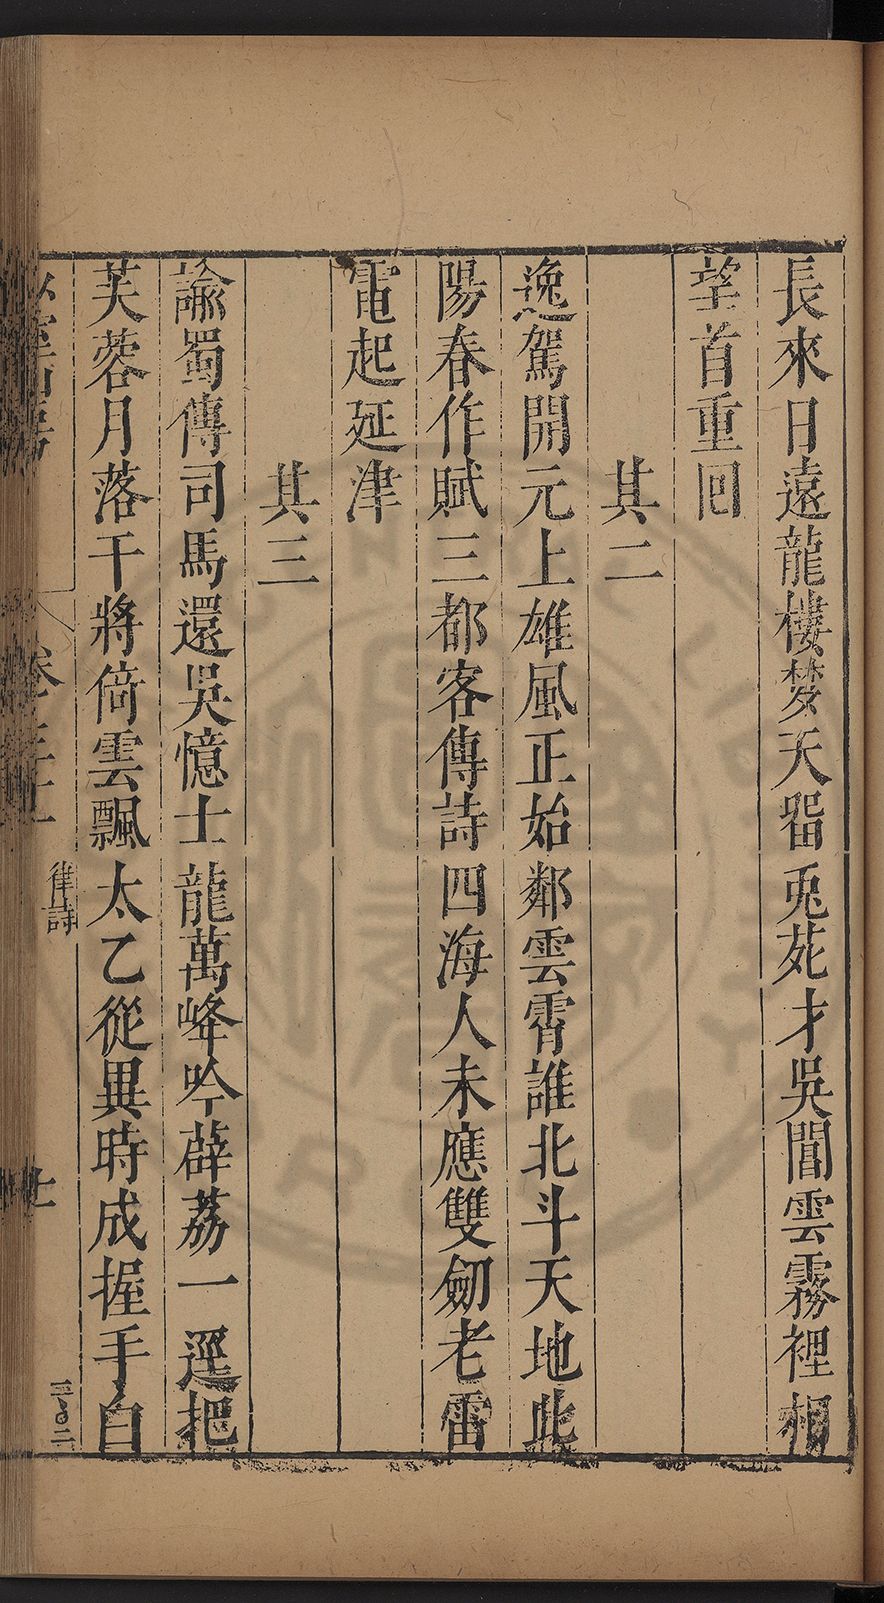 長來日遠龍樓夢天畱兎苑才吳閶雲霧裡相
望首重回
其二
逸駕開元上雄風正始鄰雲霄誰北斗天地此
陽春作賦三都客傳詩四海人未應雙劒老雷
電起延津
其三
諭蜀傳司馬還吳憶士龍萬峰吟薜荔一逕把
芙蓉月落干將倚雲飄太乙從異時成握手白
律詩